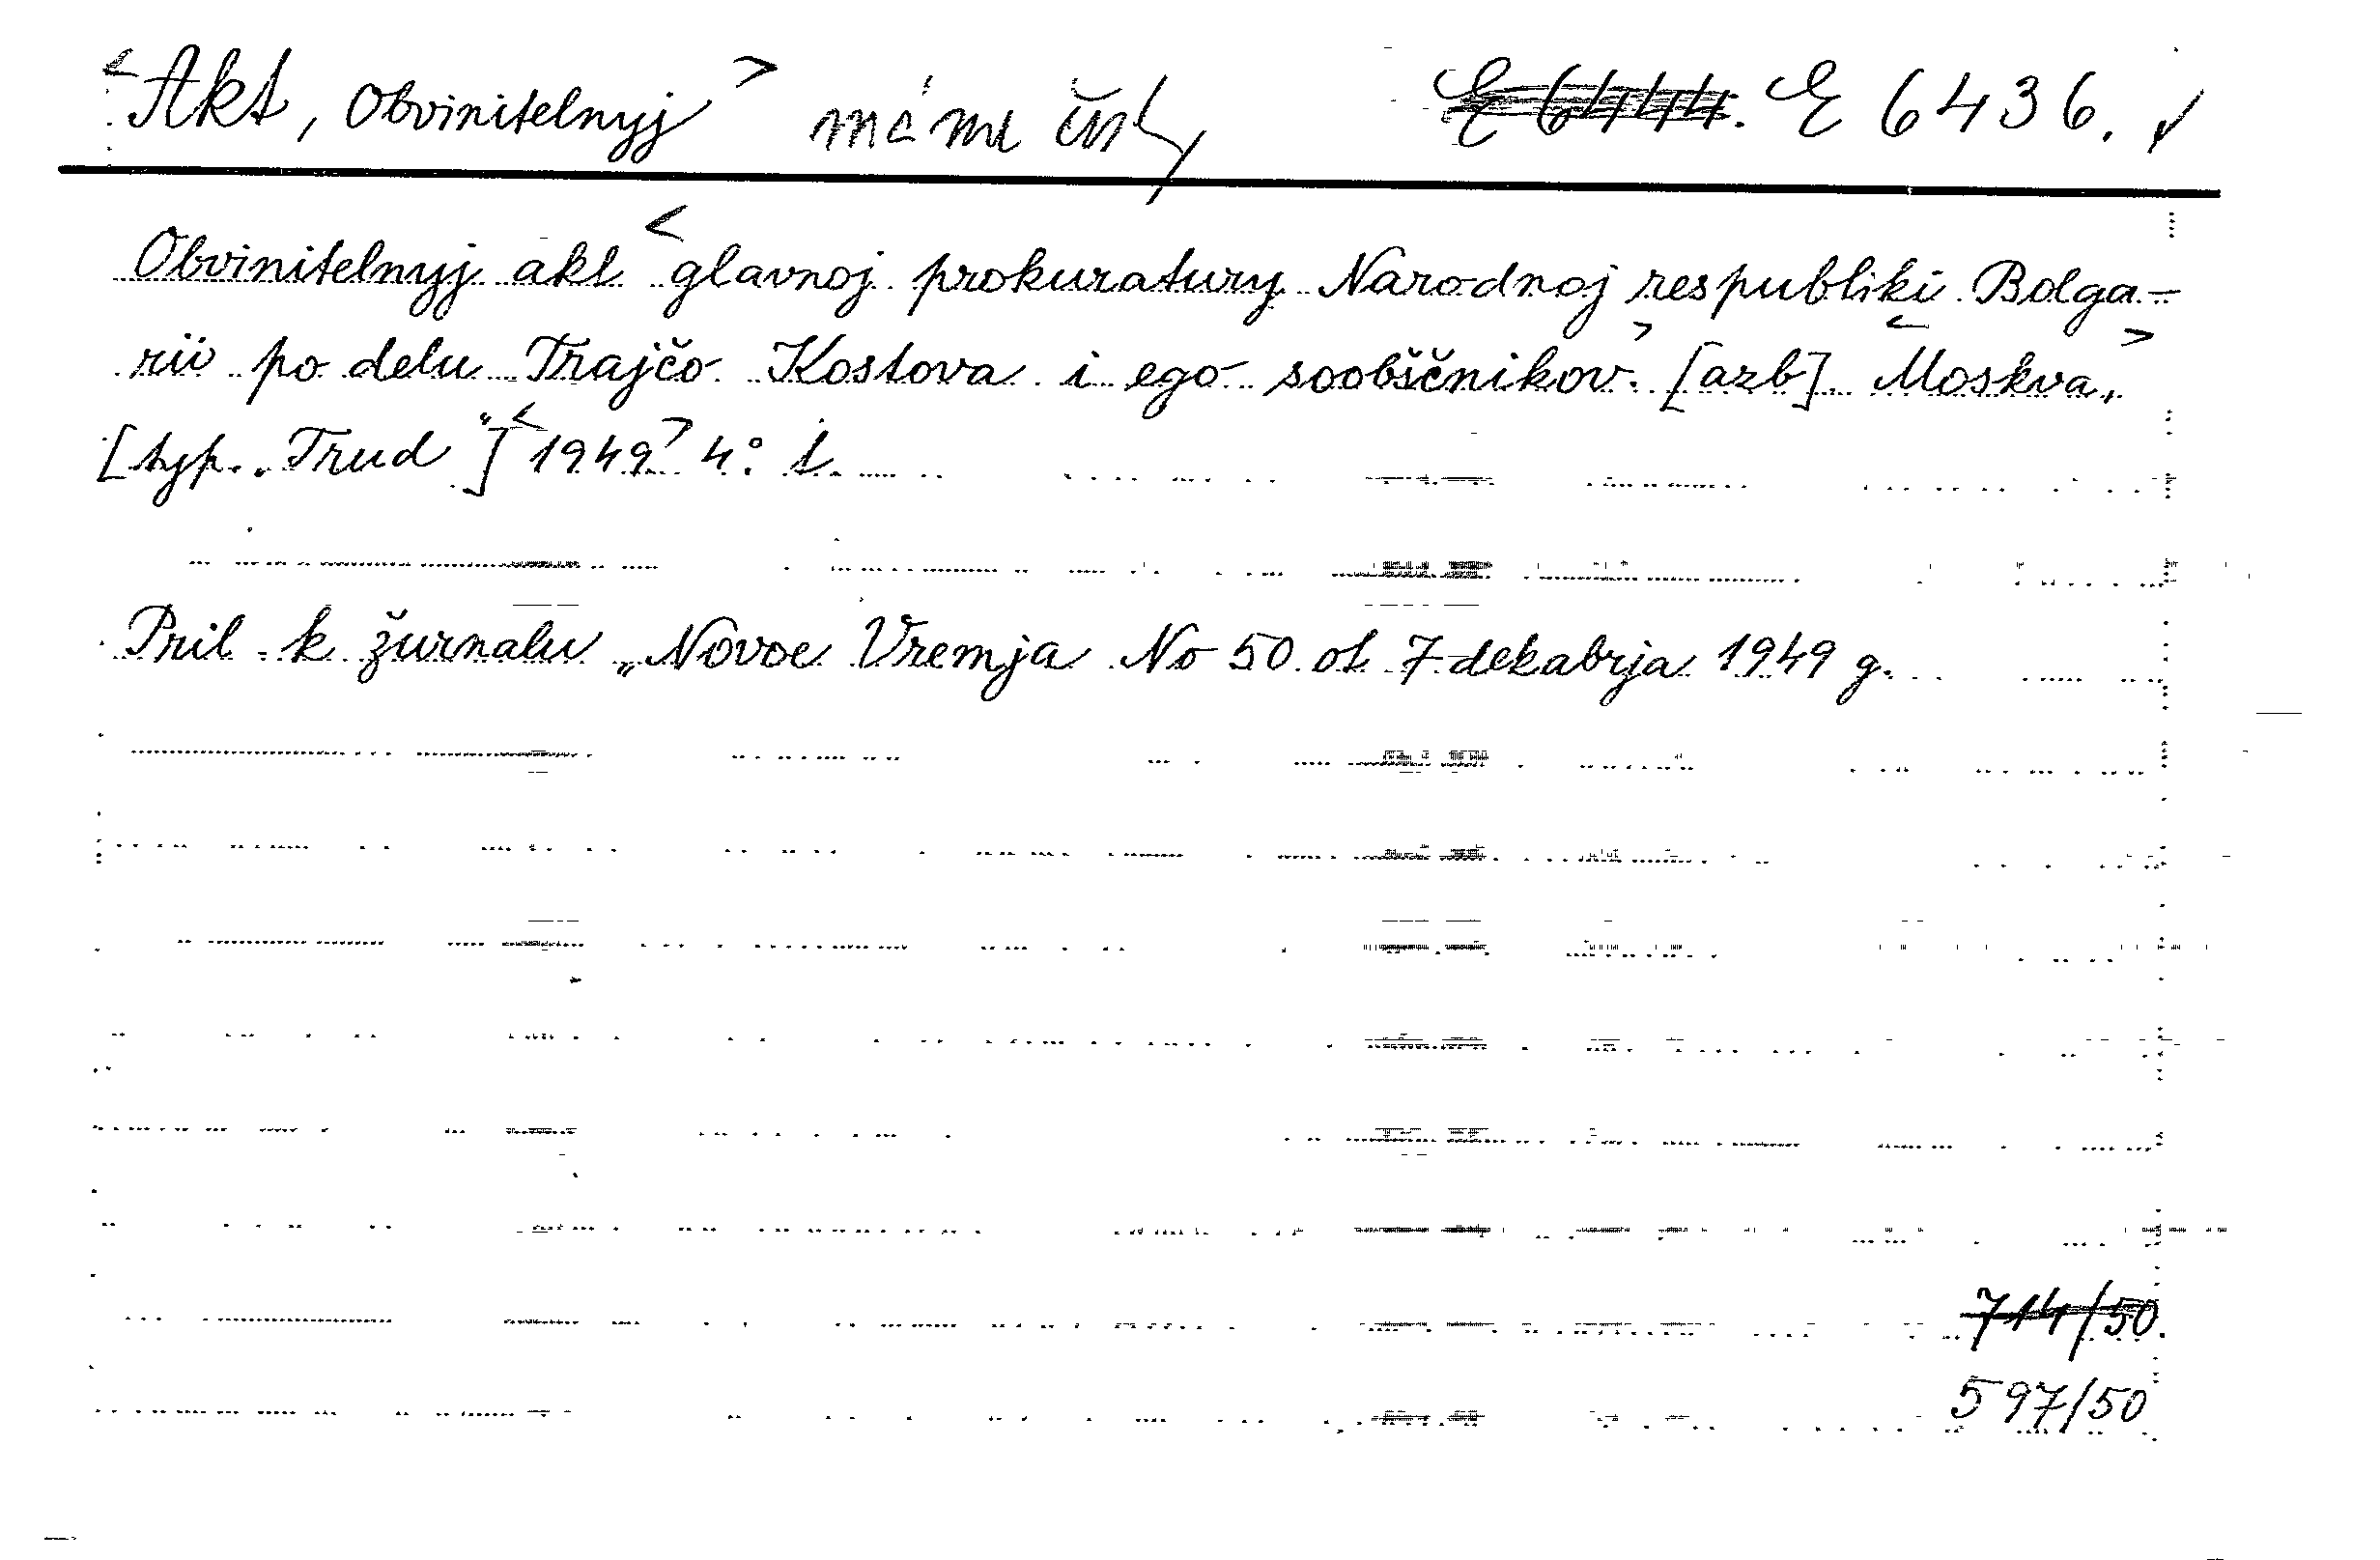 <Akt, Obvinitelnyj> máme česky E 6444. E 6436. ✓
Obvinitelnyj akt <glavnoj prokuratury Narodnoj respubliki Bolga-
rii po delu Trajčo Kostova i ego soobščnikov.> [azb] <Moskva,>
[typ. „Trud"] <1949> 4° t.
Pril. k žurnalu „Novoe Vremja No 50 ot 7 dekabrja 1949 g.
714/50.
597/50